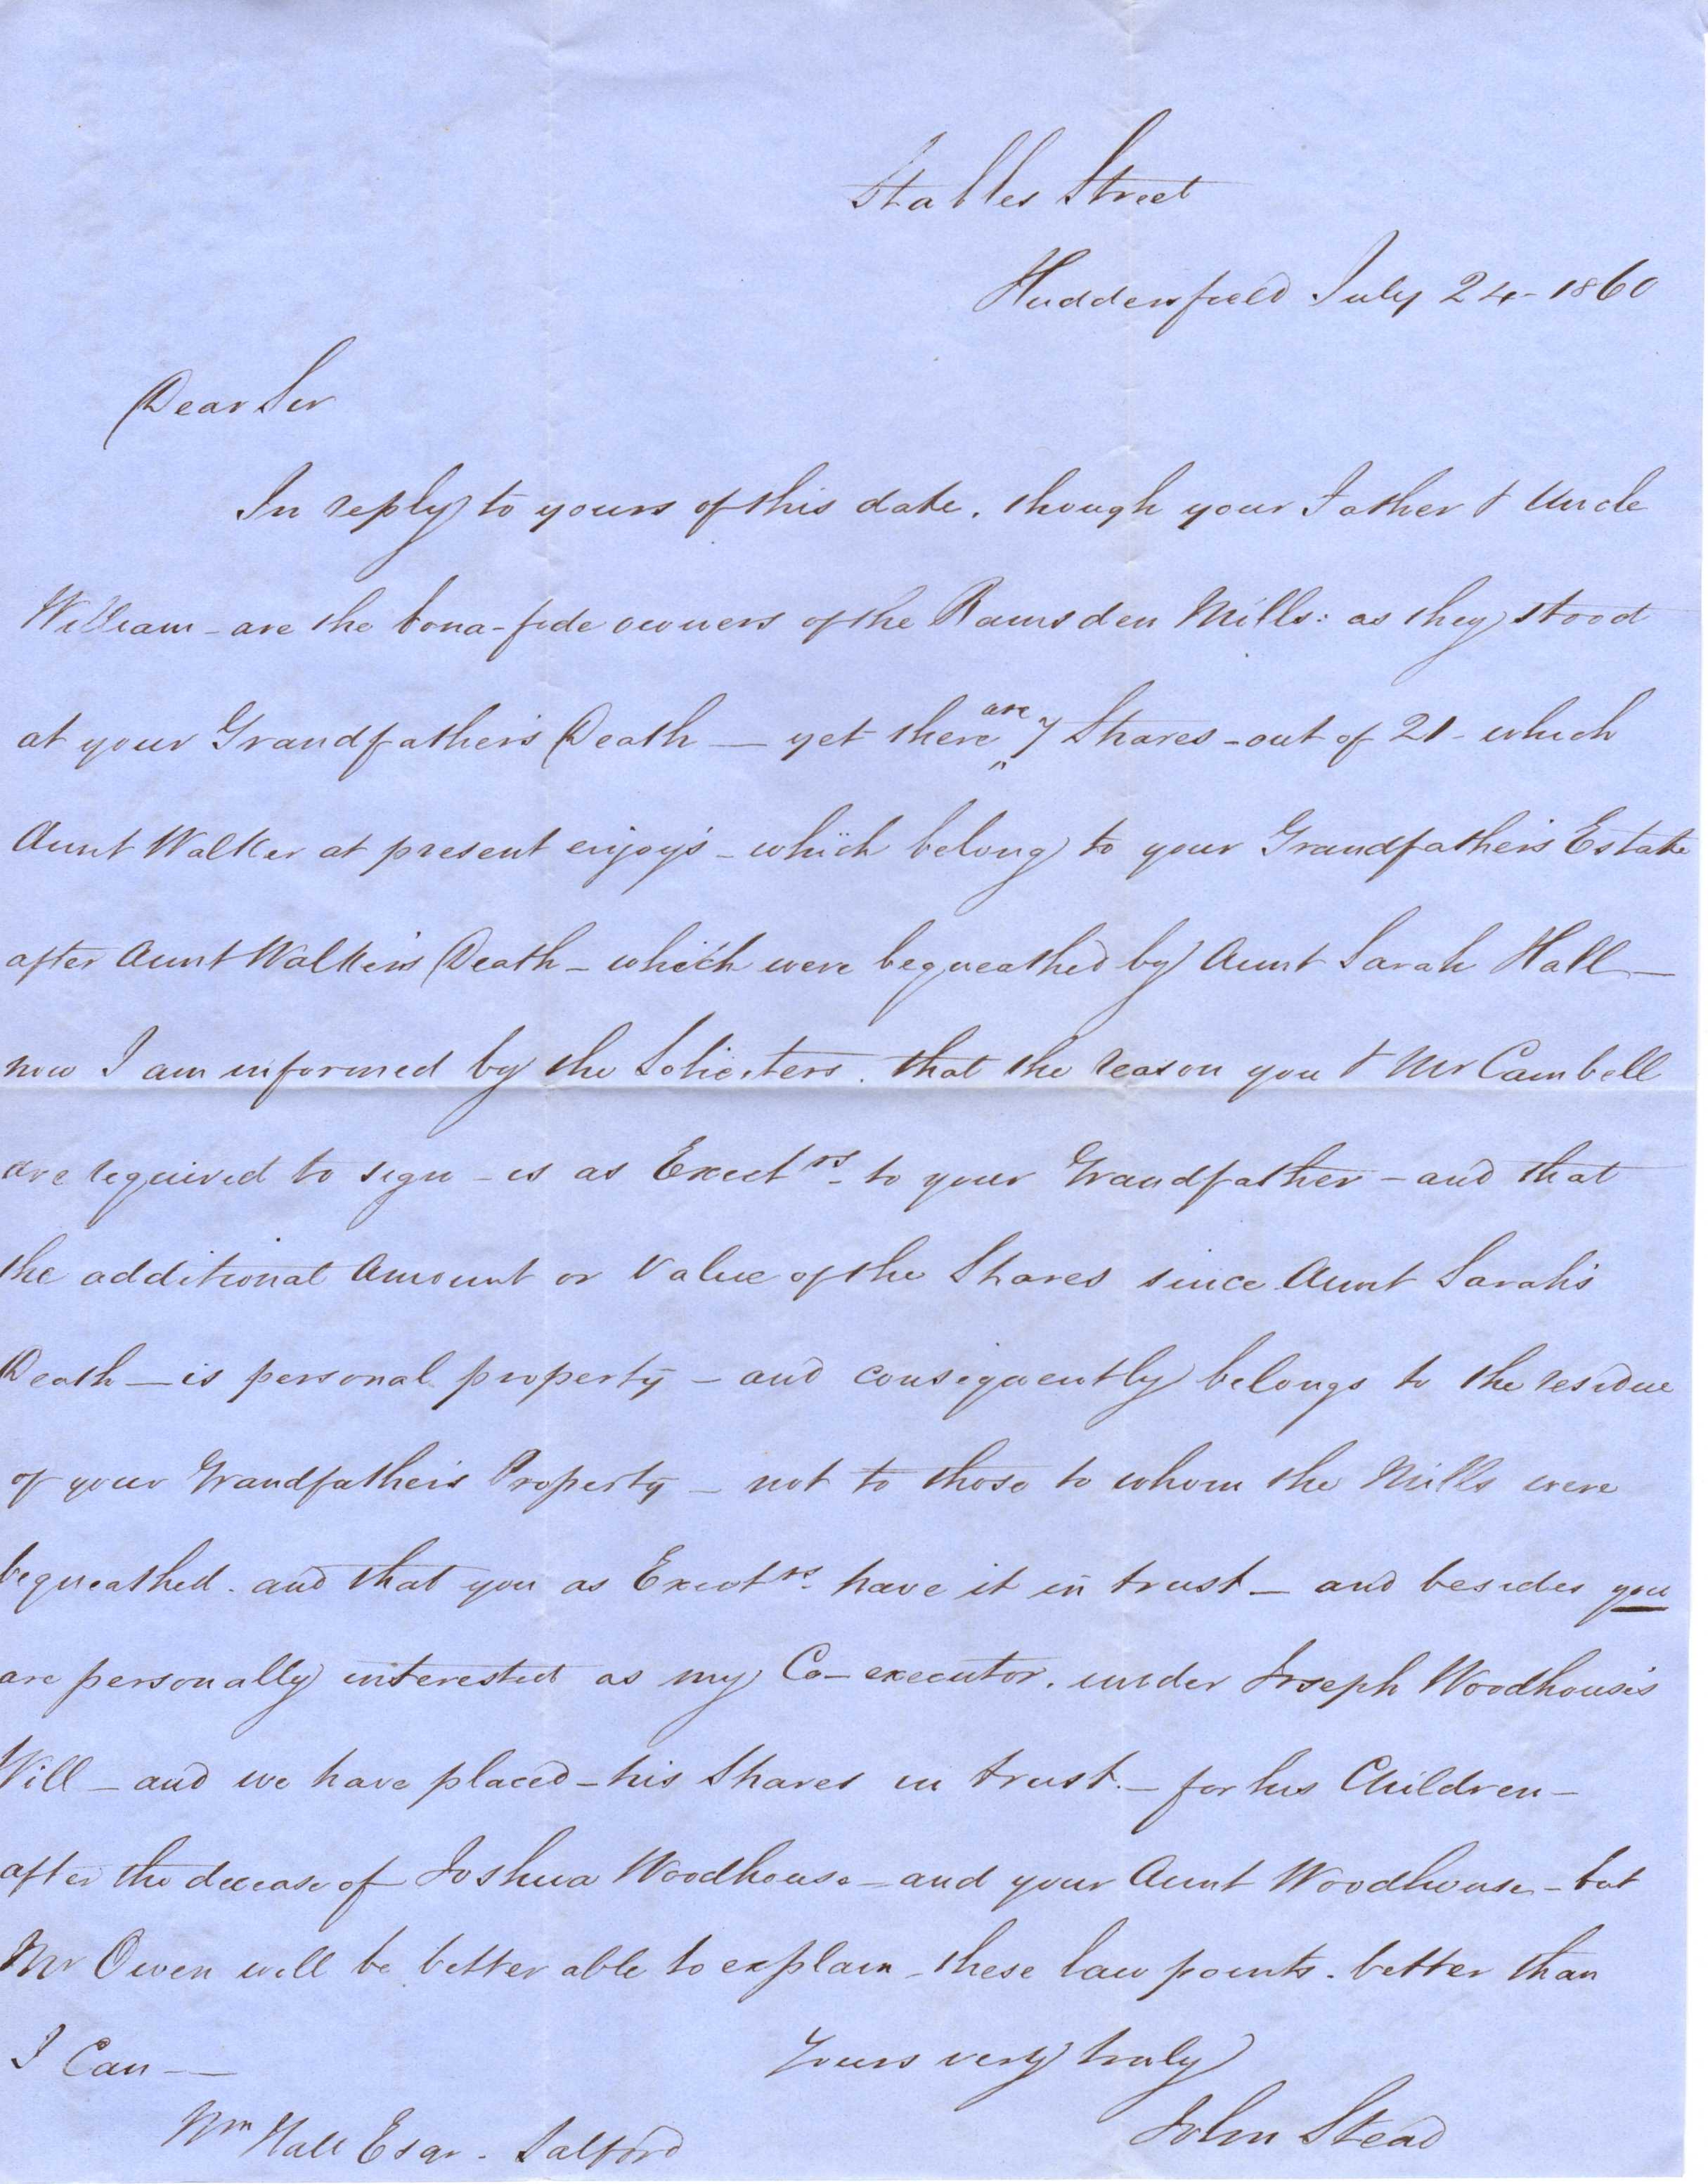 Stables Street
Huddersfield July 24 - 1860
Dear Sir
In reply to yours of this date, though your Father & Uncle
William - are the bona-fide owners of the Ramsden Mills: as they stood
at your Grandfather's Death — yet there are 7 Shares - out of 21 - which
Aunt Walker at present enjoy's - which belong to your Grandfather's Estate
after Aunt Walker's Death - which were bequeathed by Aunt Sarah Hall —
now I am informed by the Soliciters. that the reason you & Mr Cambell
are required to sign - is as Exect.rs - to your Grandfather - and that
the additional Amount or Value of the Shares since Aunt Sarah's
Death — is personal property - and consequently belongs to the residue
of your Grandfather's Property - not to those to whom the Mills were
bequeathed. and that you as Exect.rs have it in trust — and besides you
are personally interested as my Co-executor. under Joseph Woodhouse's
Will - and we have placed - his Shares in trust. - for his Children -
after the decease of Joshua Woodhouse - and your Aunt Woodhouse - but
Mr Owen will be better able to explain - these law points. better than
I Can —
Yours very truly
John Stead
Wm Hall Esqr. Salford